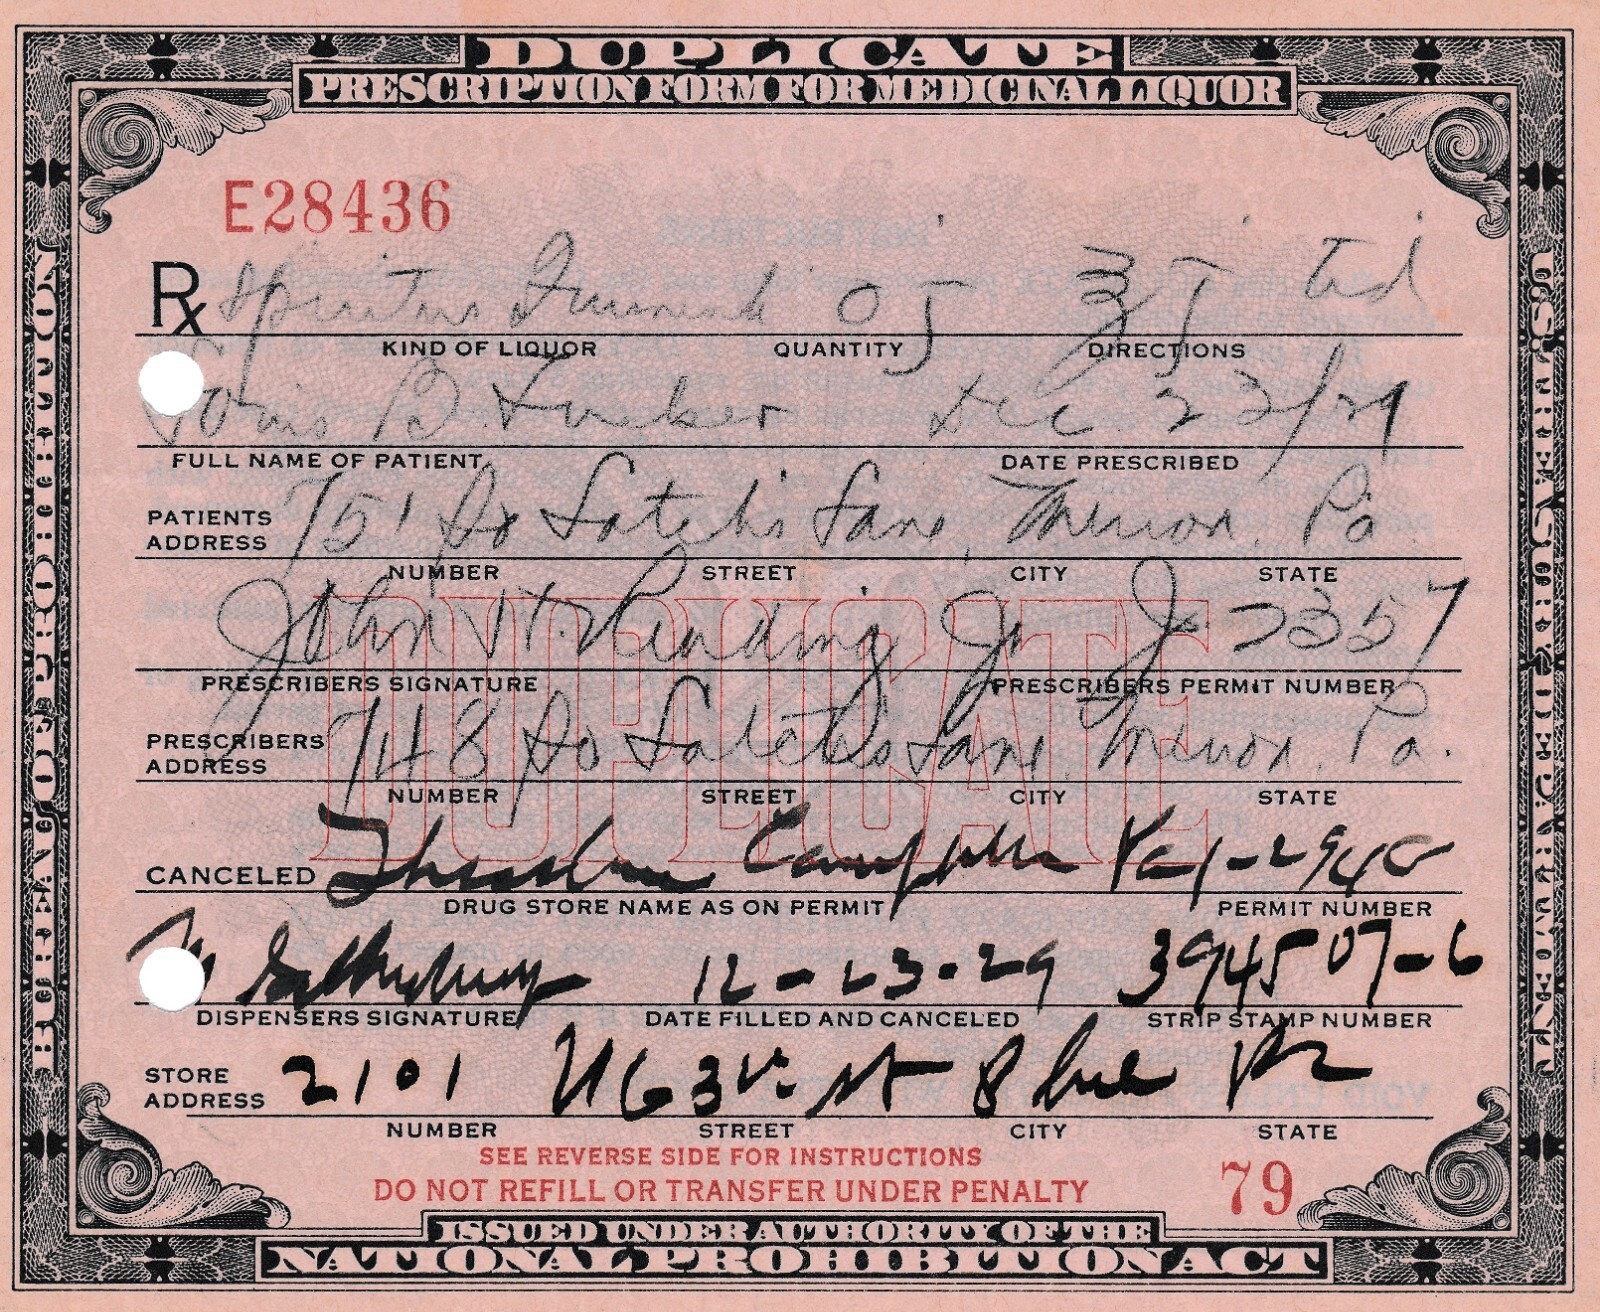 DUPLICATE
PRESCRIPTION FORM FOR MEDICINAL LIQUOR
E28436
Rx Spiritus Frumenti Oj ʒj tid
KIND OF LIQUOR QUANTITY DIRECTIONS
B. Tucker Dec 23/29
FULL NAME OF PATIENT DATE PRESCRIBED
PATIENTS ADDRESS 751 So Latch's Lane, Merion, Pa
NUMBER STREET CITY STATE
John H. Reading Jr J 2357
PRESCRIBERS SIGNATURE PRESCRIBERS PERMIT NUMBER
PRESCRIBERS ADDRESS 748 So Latch's Lane, Merion, Pa.
NUMBER STREET CITY STATE
DUPLICATE
CANCELED Campbell
DRUG STORE NAME AS ON PERMIT PERMIT NUMBER
12-23-29 394507-6
DISPENSERS SIGNATURE DATE FILLED AND CANCELED STRIP STAMP NUMBER
STORE ADDRESS 2101 N 63rd St Phila Pa
NUMBER STREET CITY STATE
SEE REVERSE SIDE FOR INSTRUCTIONS
DO NOT REFILL OR TRANSFER UNDER PENALTY
79
ISSUED UNDER AUTHORITY OF THE
NATIONAL PROHIBITION ACT